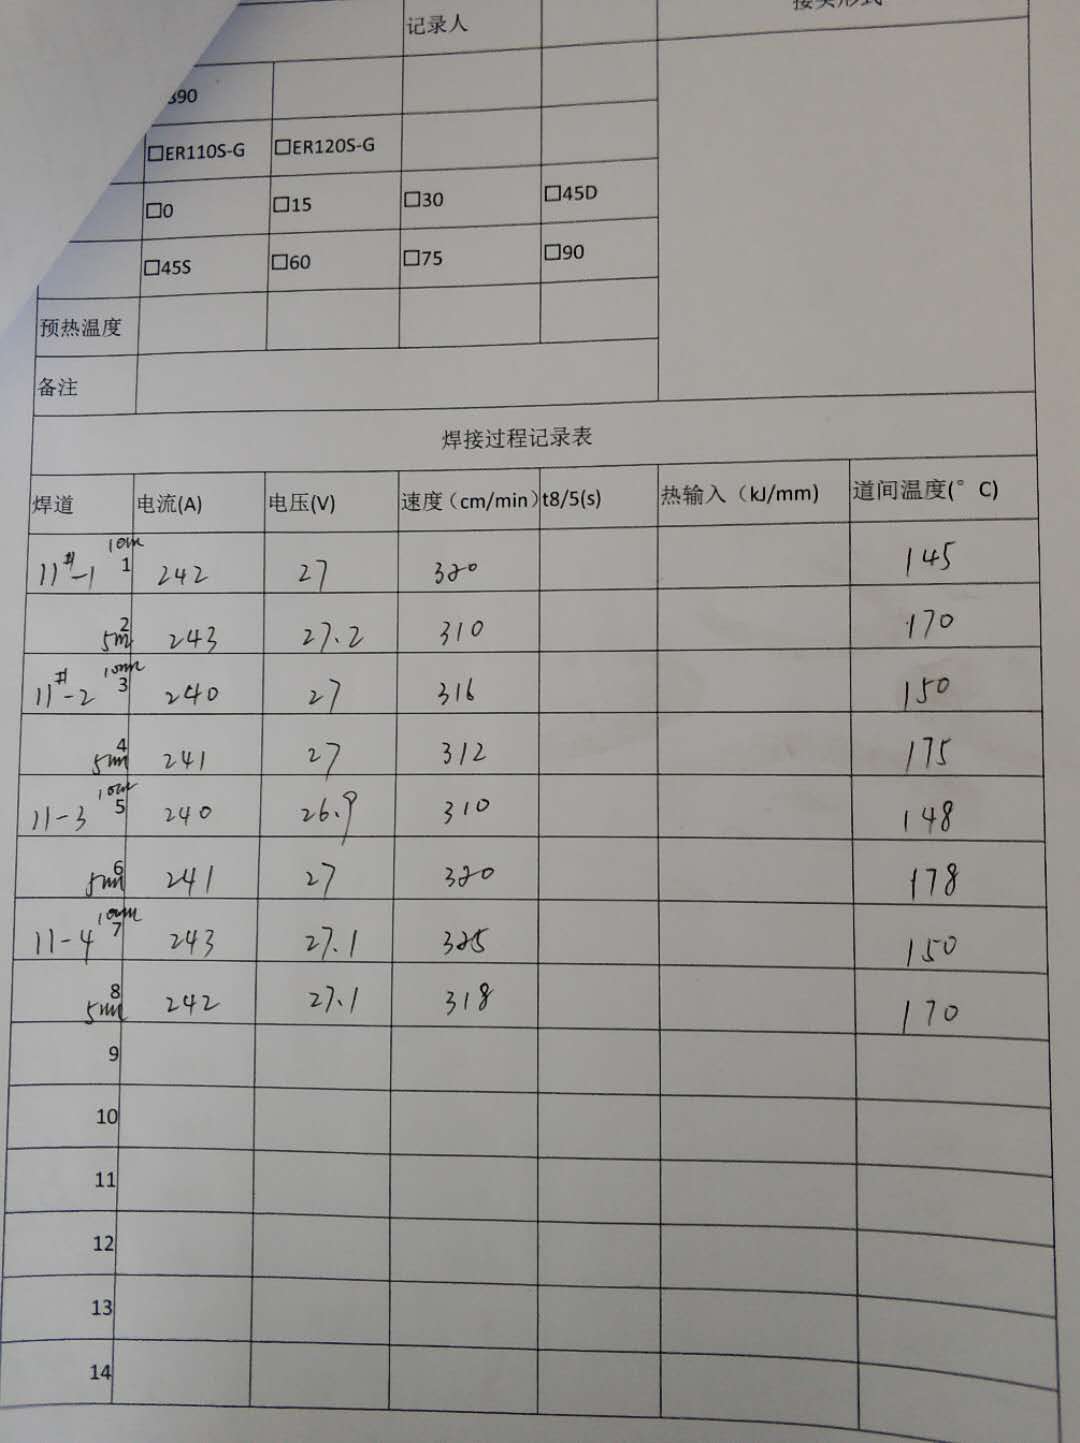 记录人
接头形式
390
□ER110S-G □ER120S-G
□0 □15 □30 □45D
□45S □60 □75 □90
预热温度
备注
焊接过程记录表
焊道 电流(A) 电压(V) 速度（cm/min） t8/5(s) 热输入（kJ/mm） 道间温度(°C)
11#-1 10mm 1 242 27 320 145
5mm 2 243 27.2 310 170
11#-2 10mm 3 240 27 316 150
5mm 4 241 27 312 175
11-3 10mm 5 240 26.9 310 148
5mm 6 241 27 320 178
11-4 10mm 7 243 27.1 325 150
5mm 8 242 27.1 318 170
9
10
11
12
13
14